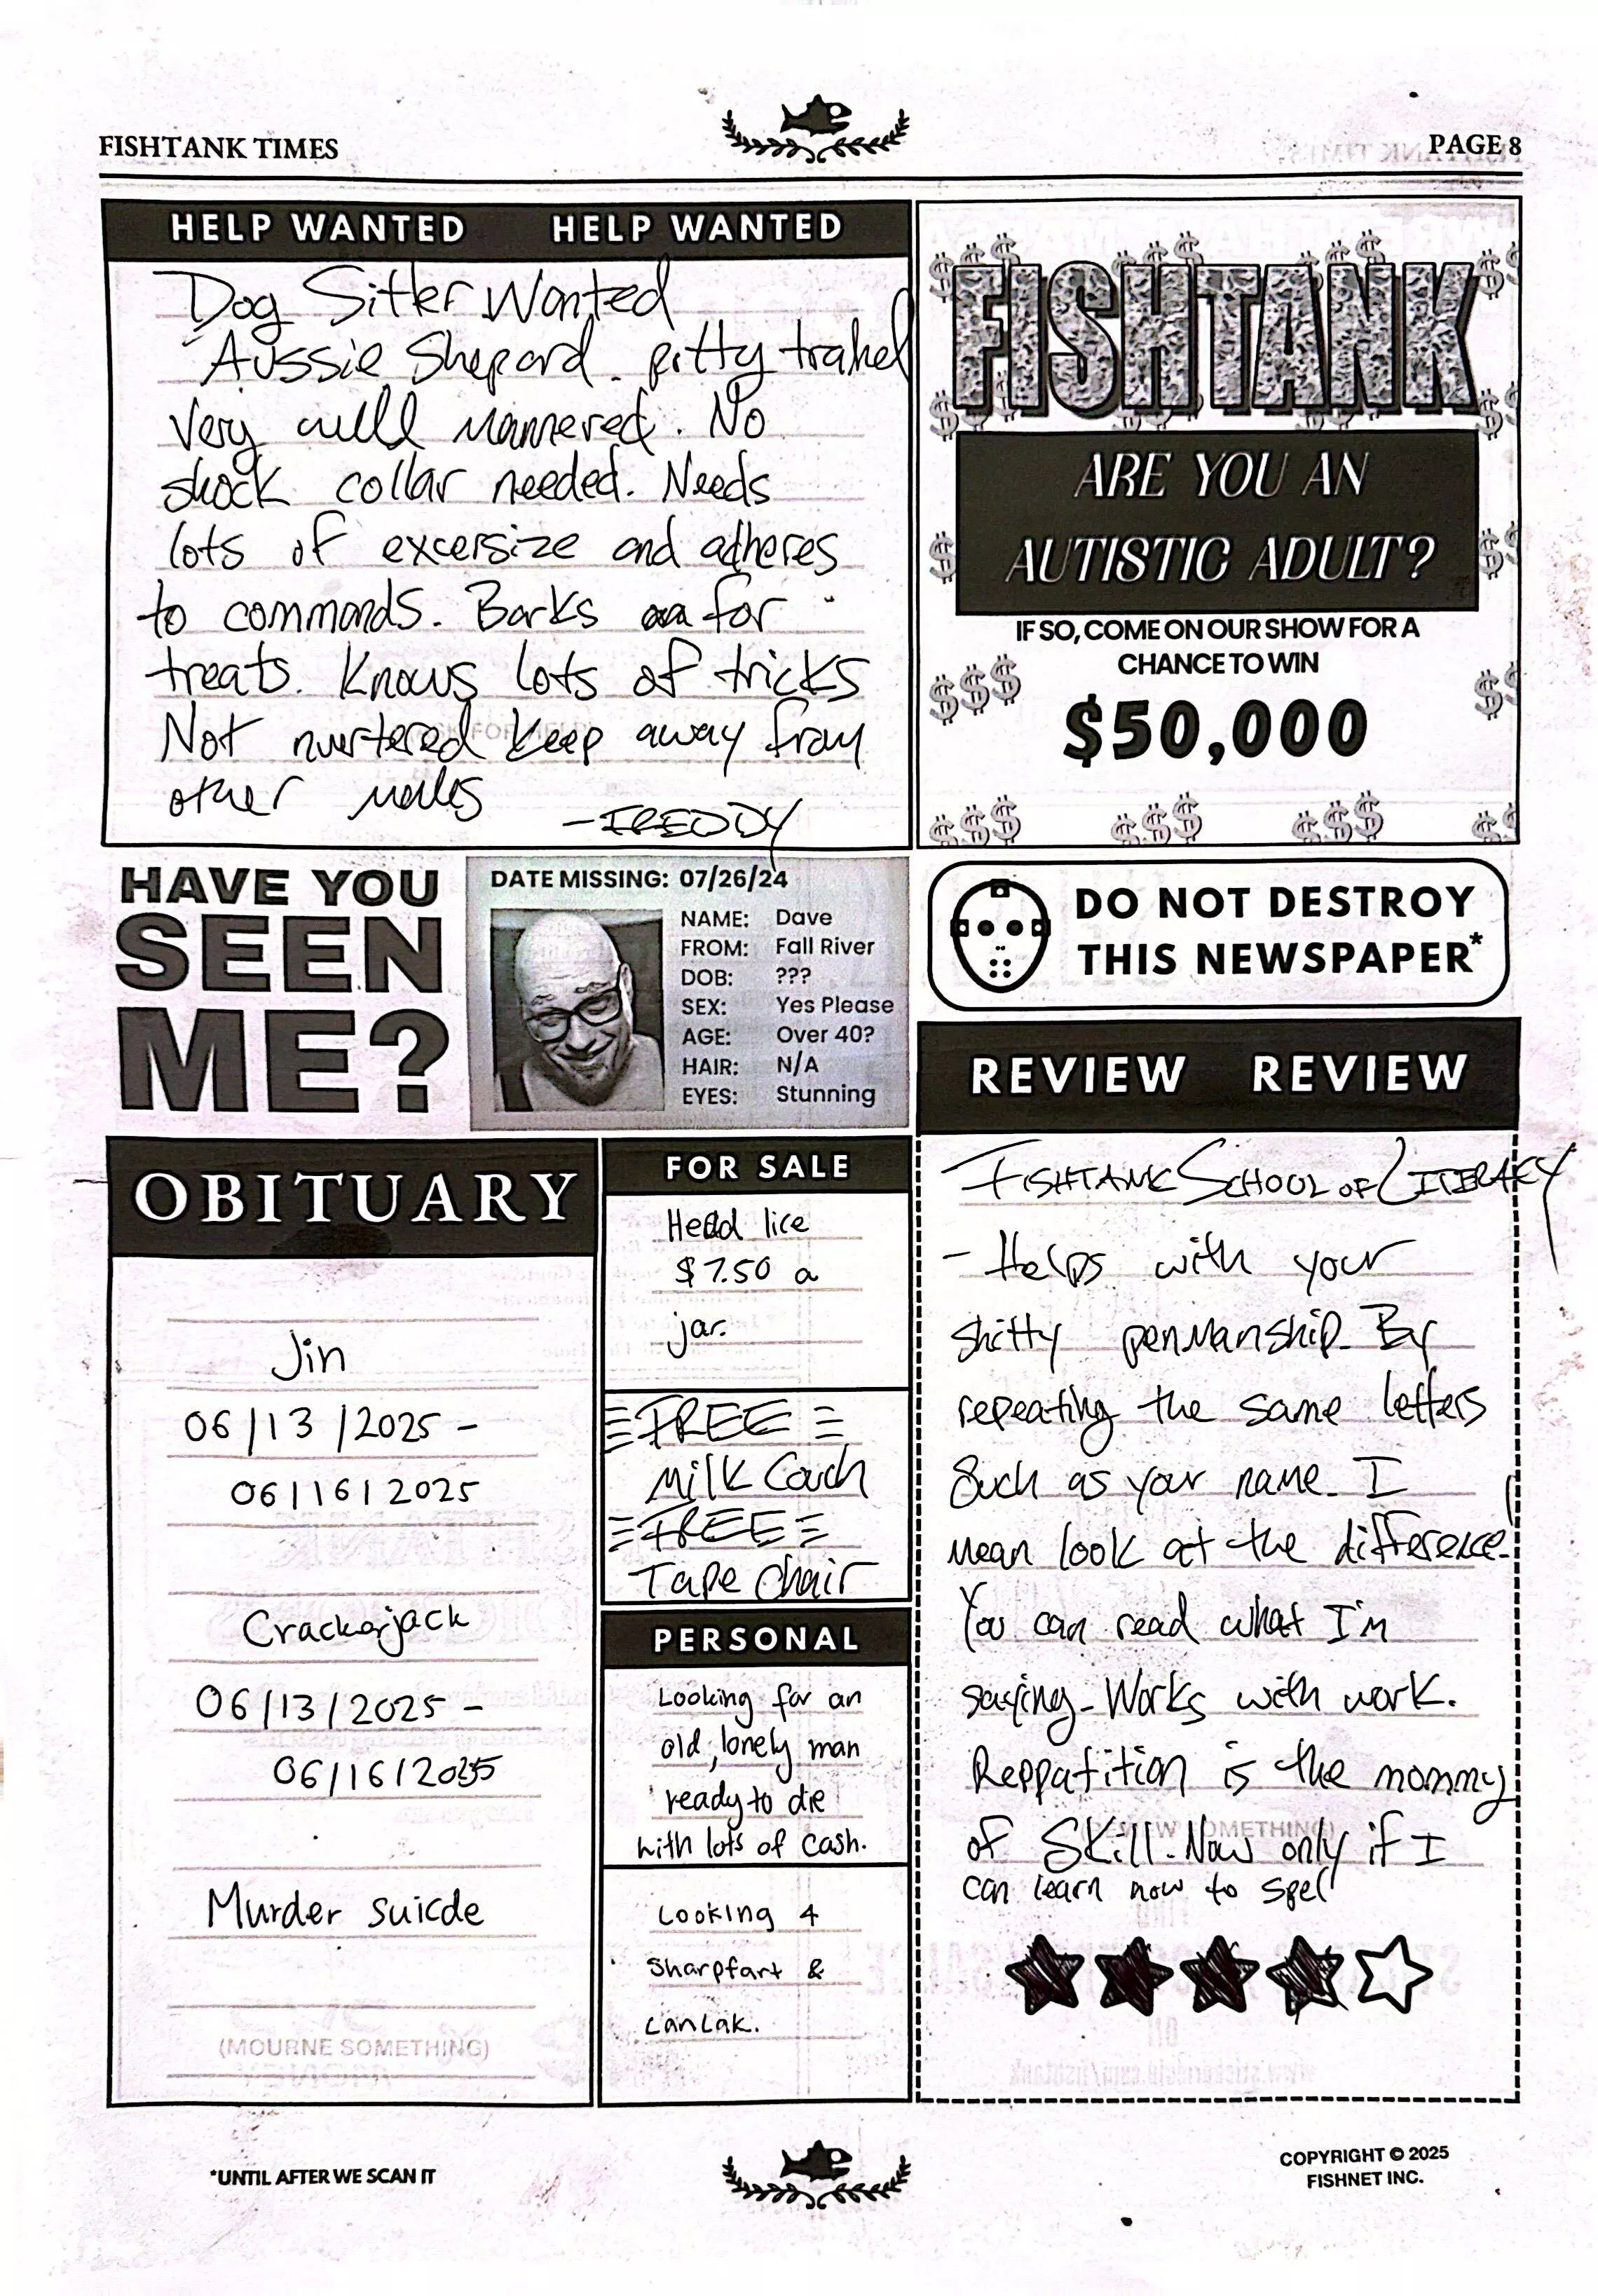 FISHTANK TIMES
PAGE 8
HELP WANTED HELP WANTED
Dog Sitter Wanted
Aussie Shepard. pitty
Very well mannered. No
shock collar needed. Needs
lots of excersize and adheres
to commands. Barks for
treats. Knows lots of tricks
Not nurtered keep away from
other males
-FREDDY
FISHTANK
ARE YOU AN
AUTISTIC ADULT?
IF SO, COME ON OUR SHOW FOR A
CHANCE TO WIN
$50,000
HAVE YOU
SEEN
ME?
DATE MISSING: 07/26/24
NAME: Dave
FROM: Fall River
DOB: ???
SEX: Yes Please
AGE: Over 40?
HAIR: N/A
EYES: Stunning
DO NOT DESTROY
THIS NEWSPAPER*
OBITUARY
Jin
06/13/2025 -
06/16/2025
Crackerjack
06/13/2025 -
06/16/2025
Murder suicde
(MOURNE SOMETHING)
FOR SALE
Head lice
$7.50 a
jar.
FREE
Milk Couch
FREE
Tape Chair
PERSONAL
Looking for an
old, lonely man
ready to die
with lots of cash.
Looking 4
Sharpfart &
CanLak.
REVIEW REVIEW
FISHTANK SCHOOL OF LITERAKY
- Helps with your
shitty penmanship. By
repeating the same letters
Such as your name. I
mean look at the difference!
You can read what I'm
saying. Works with work.
Reppatition is the mommy
of Skill. Now only if I
can learn how to spel
(REVIEW SOMETHING)
*UNTIL AFTER WE SCAN IT
COPYRIGHT © 2025
FISHNET INC.